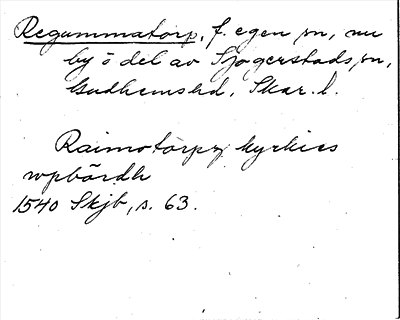 Regummatorp, f. egen sn, nu
by o del av Sjogerstads sn,
Gudhems hd, Skar. l.
Raimotorpz kyrkies
wpbördh
1540 Skjb, s. 63.